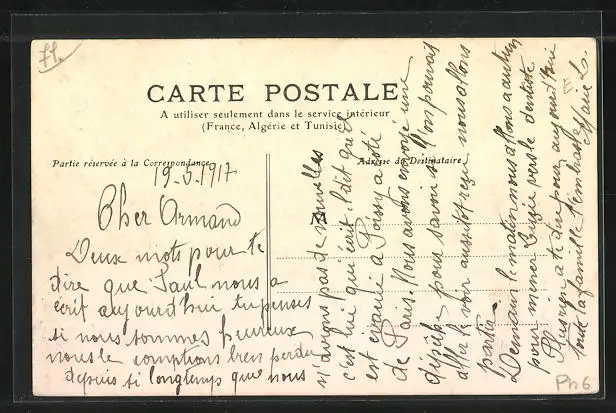 71.
CARTE POSTALE
A utiliser seulement dans le service intérieur
(France, Algérie et Tunisie)
Partie réservée à la Correspondance
Adresse du Destinataire
M
19.5.1917
Cher Armand
Deux mots pour te
dire que Paul nous a
ecrit aujourd'hui tu penses
si nous sommes heureux
nous le comptions bien perdu
depuis si longtemps que nous
n'avions pas de nouvelles
c'est lui qui écrit. Il dit qu'il
est évacué à Poissy a coté
de Paris. Nous avons envoyé une
dépêche pour savoir si l'on pouvait
aller le voir aussitot reçu nous allons
partir.
Demain le matin nous allons a
pour mener vers le dentiste
Plus rien a te dire pour aujourd'hui
toute la famille t'embrasse
L.
Ph6